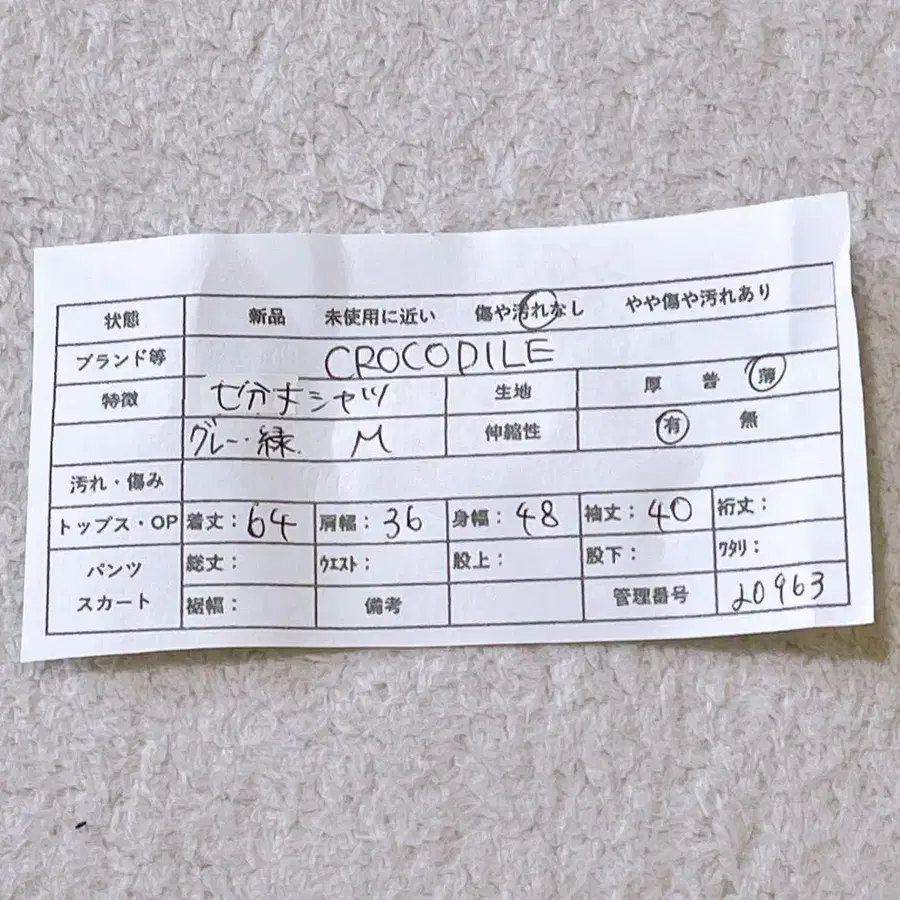 状態 新品 未使用に近い 傷や汚れなし やや傷や汚れあり
ブランド等 CROCODILE
特徴 七分丈シャツ 生地 厚 普 薄
グレー・緑 M 伸縮性 有 無
汚れ・傷み
トップス・OP 着丈：64 肩幅：36 身幅：48 袖丈：40 裄丈：
パンツ 総丈： ウエスト： 股上： 股下： ワタリ：
スカート 裾幅： 備考 管理番号 20963